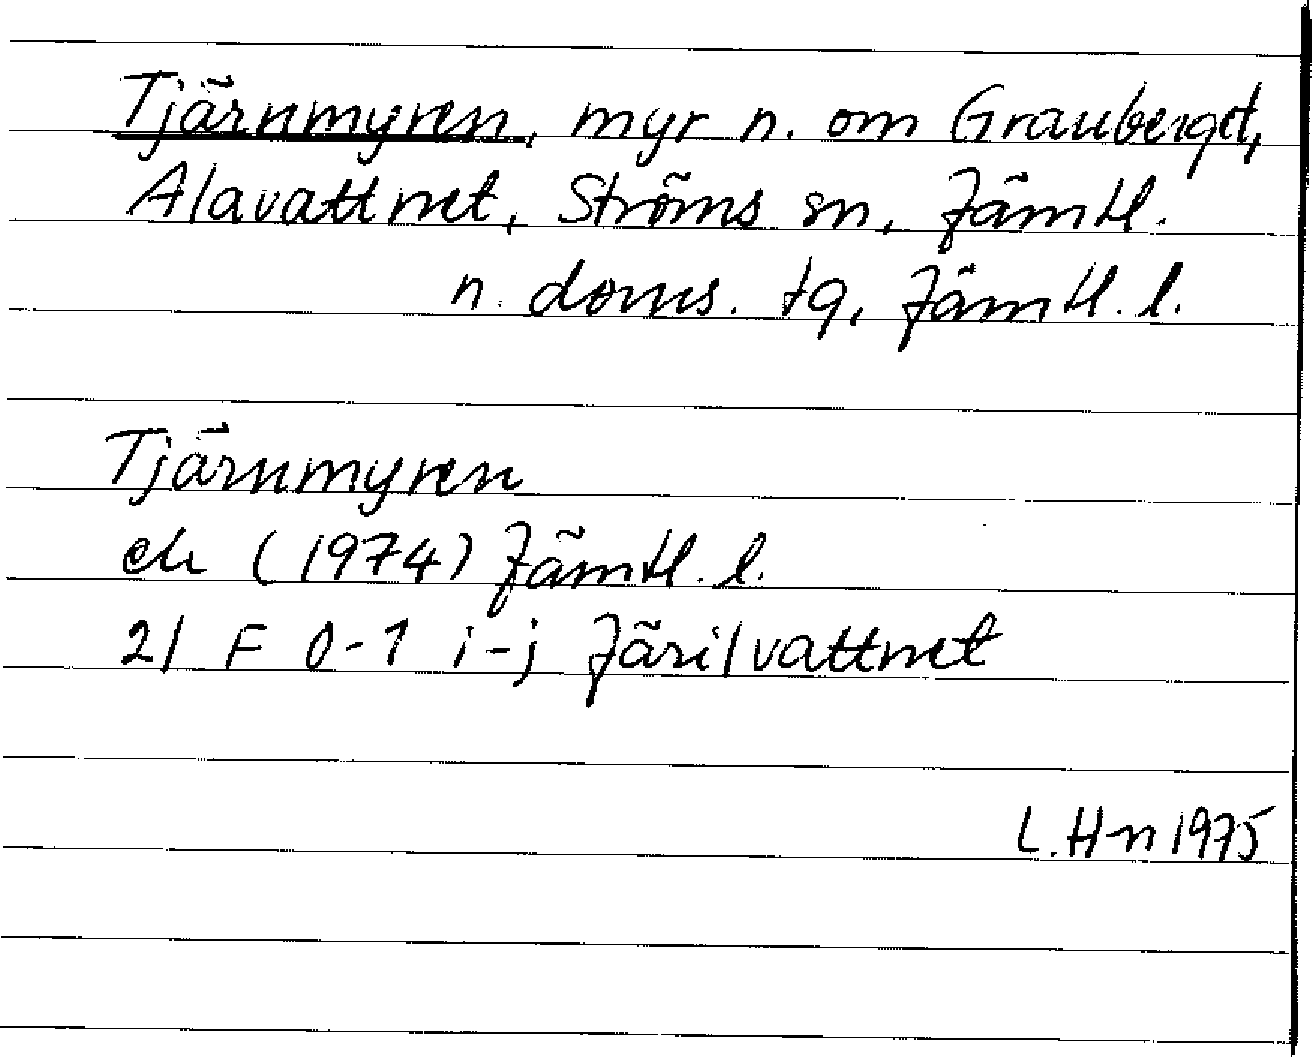 Tjärnmyren, myr n. om Grauberget,
Alavattnet, Ströms sn, Jämtl.
n. doms. tg, Jämtl. l.
Tjärnmyren
ek (1974) Jämtl. l.
21 F 0-1 i-j Järilvattnet
L. H-n 1975